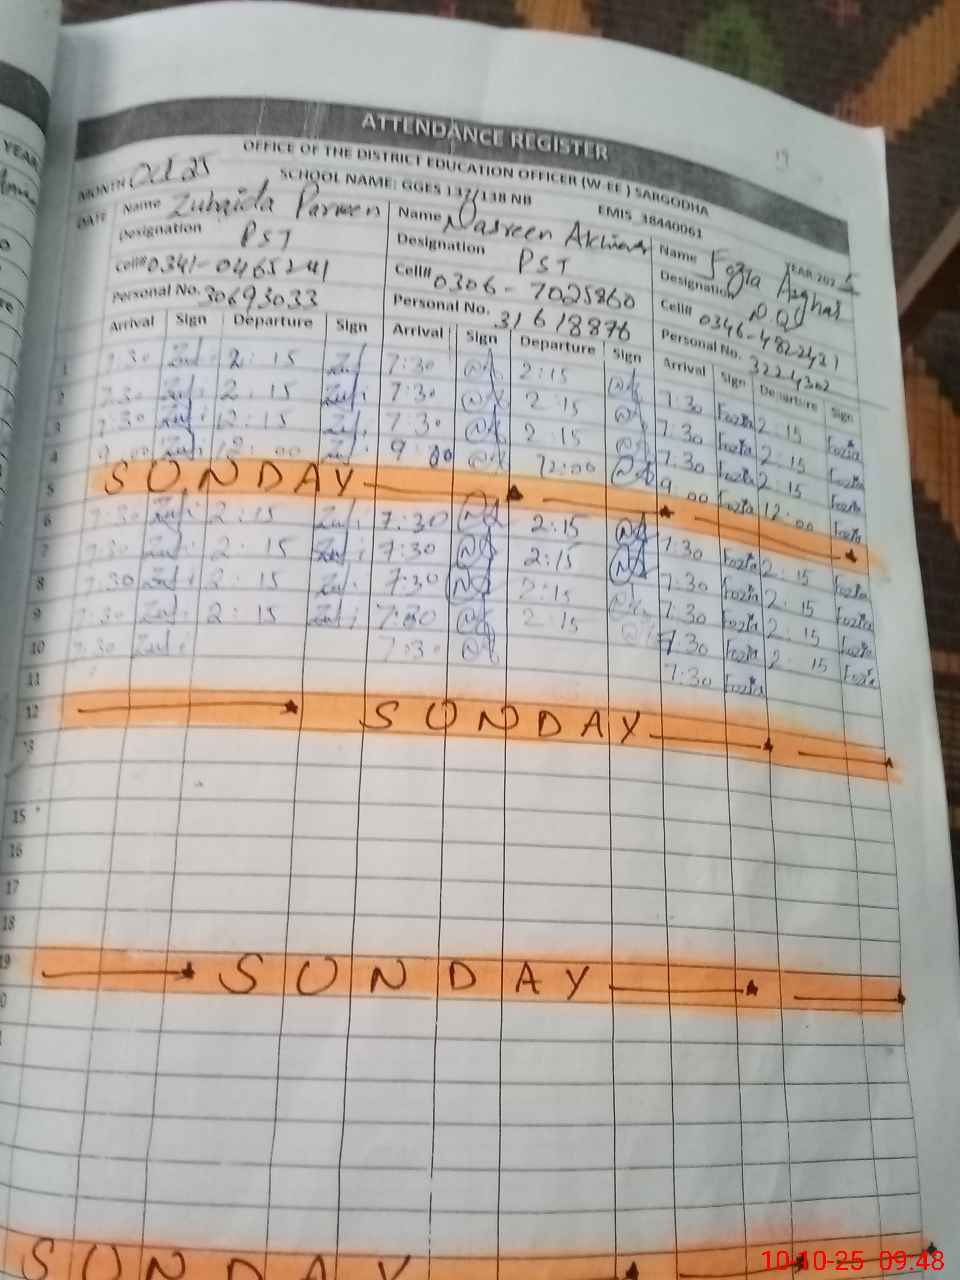 YEAR
ATTENDANCE REGISTER
OFFICE OF THE DISTRICT EDUCATION OFFICER (W-EE ) SARGODHA
MONTH Oct 25 SCHOOL NAME: GGES 137/138 NB EMIS 38440061 YEAR 2025
DATE Name Zubaida Parveen Name Nasreen Akhtar Name Fozia Asghar
Designation PST Designation PST Designation
Cell# 0341-0465241 Cell# 0306-7025860 Cell# 0346-4822431
Personal No. 30693033 Personal No. 31618876 Personal No. 3224302
Arrival Sign Departure Sign Arrival Sign Departure Sign Arrival Sign Departure Sign
1 7:30 Zub: 2:15 Zub 7:30 NA 2:15 NA 7:30 Fozia 2:15 Fozia
2 7:30 Zub: 2:15 Zub: 7:30 NA 2:15 NA 7:30 Fozia 2:15 Fozia
3 7:30 Zub: 12:15 Zub: 7:30 NA 2:15 NA 7:30 Fozia 2:15 Fozia
4 9:00 Zub: 12:00 Zub: 9:00 NA 12:00 NA 9:00 Fozia 12:00 Fozia
5 SUNDAY
6 7:30 Zub: 2:15 Zub: 7:30 NA 2:15 NA 7:30 Fozia 2:15 Fozia
7 7:30 Zub: 2:15 Zub: 7:30 NA 2:15 NA 7:30 Fozia 2:15 Fozia
8 7:30 Zub: 2:15 Zub: 7:30 NA 2:15 NA 7:30 Fozia 2:15 Fozia
9 7:30 Zub: 2:15 Zub: 7:30 NA 2:15 NA 7:30 Fozia 2:15 Fozia
10 7:30 Zub: 7:30 NA 7:30 Fozia
11
12 SUNDAY
15
16
17
18
19 SUNDAY
SUNDAY
10-10-25 09:48